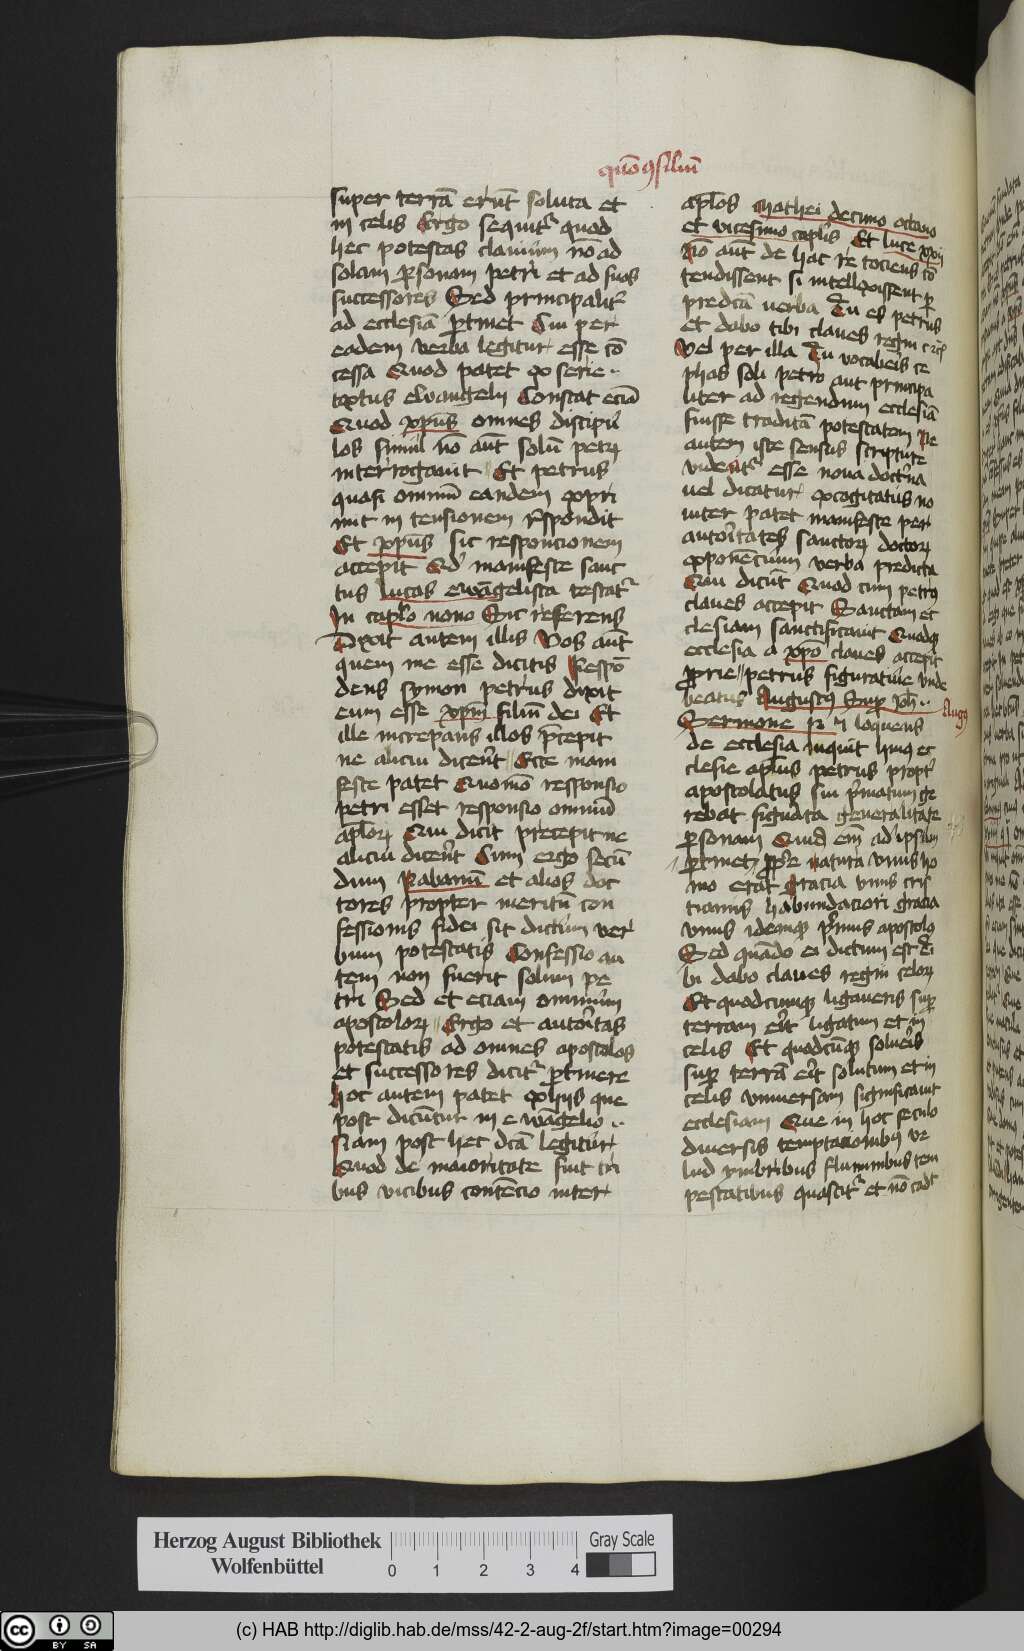 quōo ꝯsiliū
super terrā erūt soluta et
in celis Ergo sequitᷣ quod
hec potestas clauium nō ad
solam ꝑsonam petri et ad suos
successores Sed principalitᷣ
ad ecclesiā ꝑtinet Cui per
eadem verba legitur esse cō
cessa Quod patet ex serie
textus ewangelij Constat eciā
Quod xpūs omnes discipu
los simul nō aūt solū petrū
interrogauit Et petrus
quasi omniū eandem expri
mit intensionem rn̄spondit
Et xpūs sic responcionem
accepit Qd' manifeste sanc
tus lucas ewāgelista testatᷣ
In caplo nono Sic referens
Dixit autem illis Vos aūt
quem me esse dicitis Respō
dens symon petrus dixit
eum esse xpm̄ filiū dei Et
ille increpans illos p̄cepit
ne alicui dicerēt Ecce mani
feste patet Quomō responsio
petri esset responsio omniū
aplorꝝ Qui dicit precepit ne
alicui dicerēt Cum ergo secū
dum Rabanū et alios doc
tores propter meritū con
fessionis fidei sit dictum ver
bum potestatis Confessio au
tem non fuerit solum pe
tri Sed et eciam omnium
apostolorꝝ Ergo et autoritas
potestatis ad omnes apostolos
et successores dicitᷣ ꝑtinere
Hoc autem patet ex hijs que
post dicūtur in ewāgelio
Nam post hec dcā legitur
Quod de maioritate fuit tri
bus vicibus contēcio inter
aplos Mathei decimo octauo
et vicesimo caplis Et luce xxij
Nō aūt de hac re tociens cō
tendissent si intellexissent ꝑ
predcā verba Tu es petrus
et dabo tibi claues regni celoꝝ
Vel per illa Tu vocaberis ce
phas soli petro aut principa
liter ad regendum ecclesiā
fuisse traditā potestatem Ne
autem iste sensus scripture
videatᷣ esse noua doctrina
vel dicatur excogitatus no
uiter patet manifeste per
autoritates sanctorꝝ doctorꝝ
exponēcium verba predicta
Qui dicūt Quod cum petrꝯ
claues accepit Sanctam ec
clesiam sanctificauit Quodqꝫ
ecclesia a xpō claues accepit
proprie petrus figuratiue Vnde
beatus Augustinꝯ super Joh̄
Sermone loquens
de ecclesia inquit huiꝯ ec
clesie aplus petrus proptᷣ
apostolatus sui p̄matum ge
rebat figurata generalitate
ꝑsonam Quid em̄ ad ipsum
ꝑtinet ꝓprie natura vnus ho
mo erat gracia vnus cris
tianus habundaciori gracia
vnus idemqꝫ p̄mus apostolꝯ
Sed quādo ei dictum est Ti
bi dabo claues regni celorꝝ
Et quodcumqꝫ ligaueris suꝑ
terram erit ligatum et in
celis Et quodcūqꝫ solueris
suꝑ terrā erit solutum et in
celis vniuersam significauit
ecclesiam Que in hoc seculo
diuersis temptacionibꝯ ve
lud ymbribus fluminibus tem
pestatibus quatitᷣ et nō cadit
Augꝯ
Herzog August Bibliothek
Wolfenbüttel
0 1 2 3 4
Gray Scale
cc BY SA
(c) HAB http://diglib.hab.de/mss/42-2-aug-2f/start.htm?image=00294